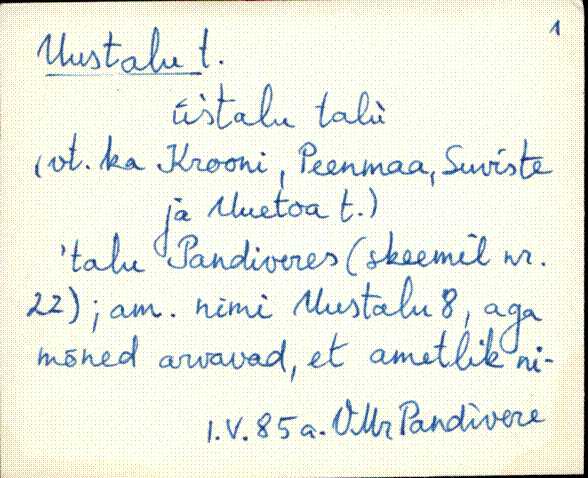 1
Uustalu t.
üstalu talu
(vt. ka Krooni, Peenmaa, Suviste
ja Uuetoa t.)
'talu Pandiveres (skeemil nr.
22); am. nimi Uustalu 8, aga
mõned arvavad, et ametlik ni-
I.V.85a. VMr Pandivere